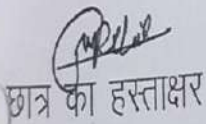 छात्र का हस्ताक्षर